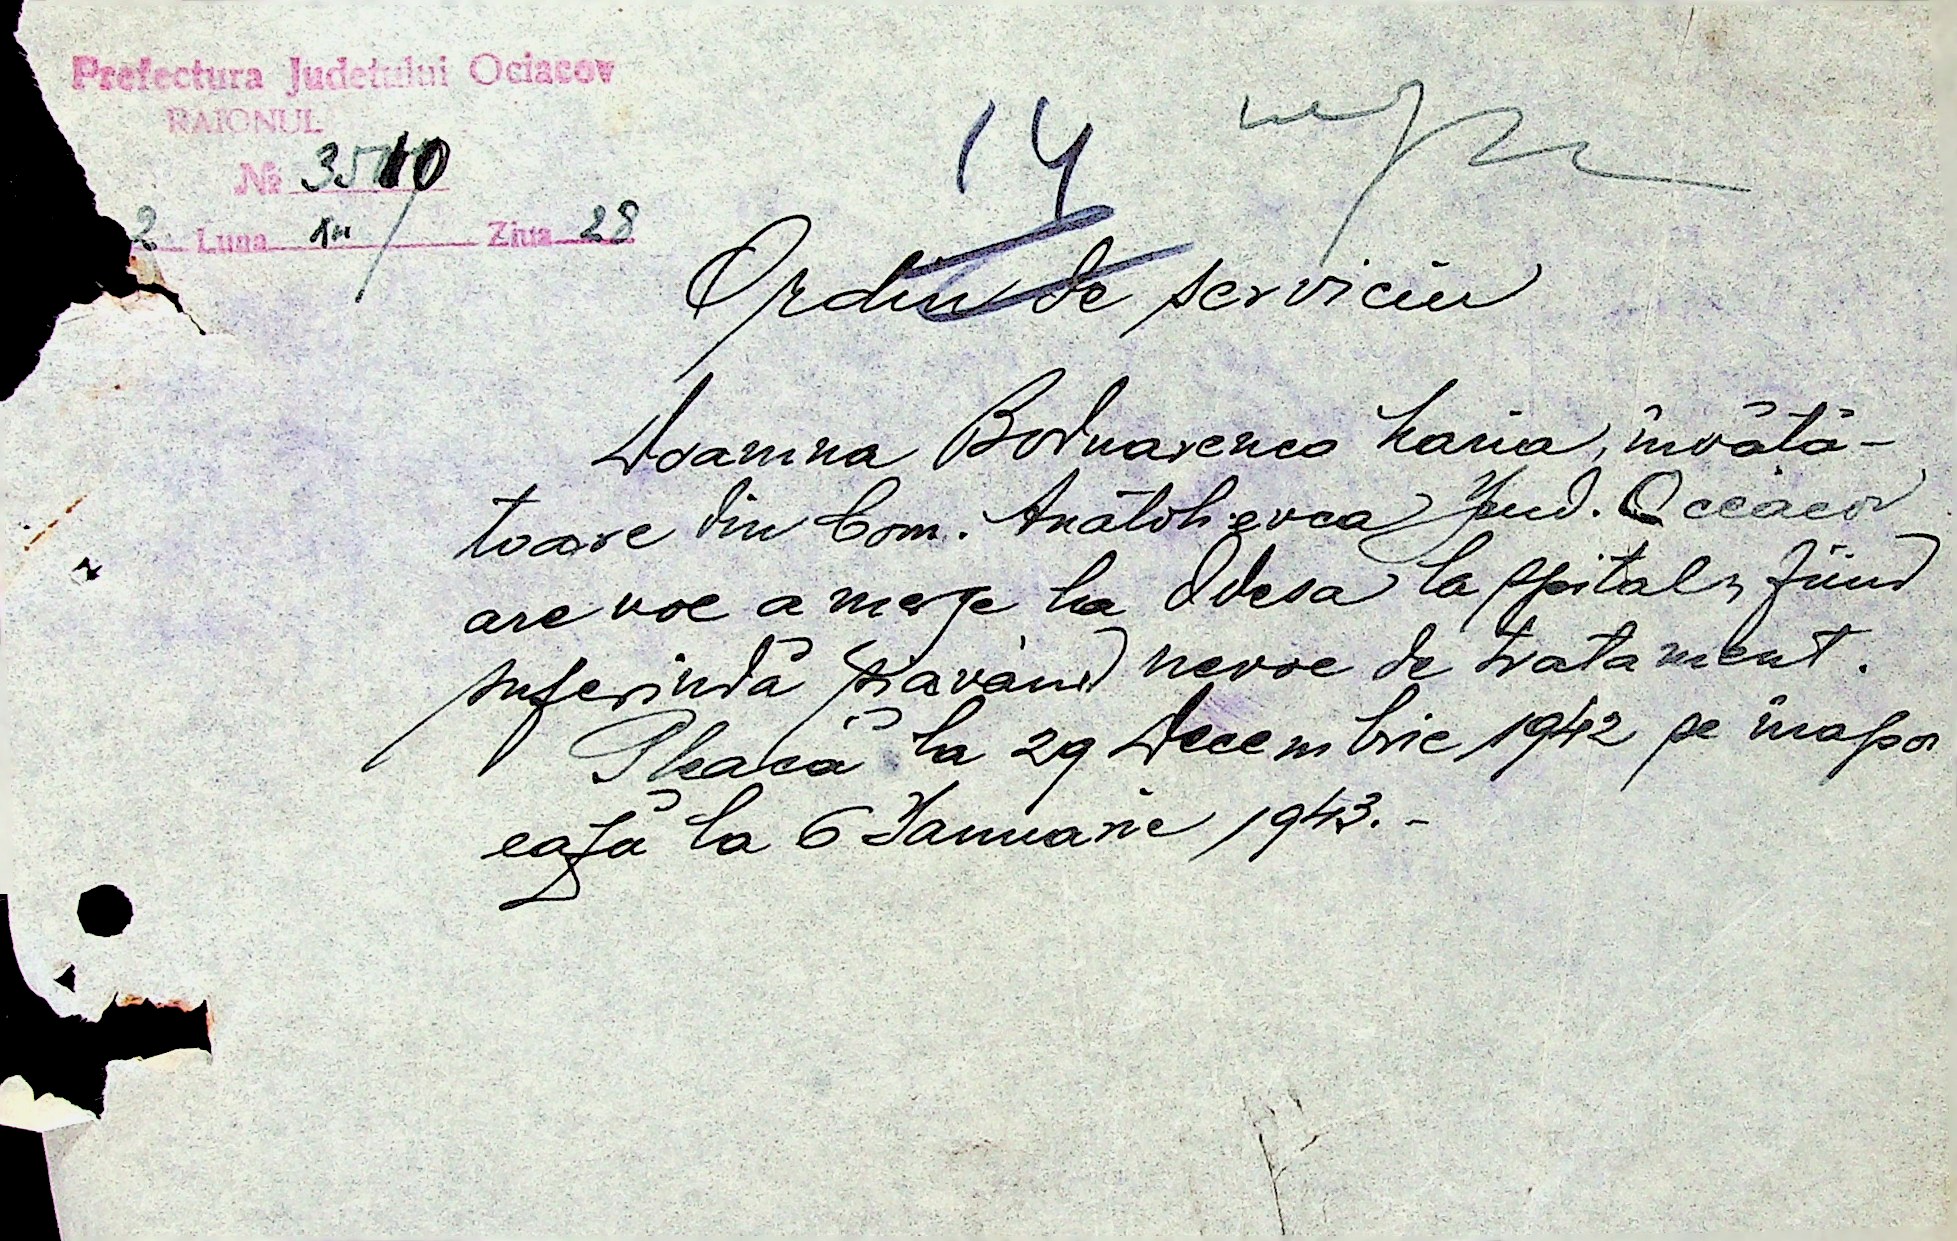 Prefectura Județului Ociacov
RAIONUL
№ 3510
2 Luna XII Ziua 28
14
Ordin de serviciu
Doamna Bodnarenco Maria, învăță-
toare din Com. Anatolievca Jud. Oceacov
are voe a merge la Odesa la spital, fiind
suferindă și având nevoe de tratament.
Pleacă la 29 Decembrie 1942 pe înapo
ează la 6 Ianuarie 1943.-